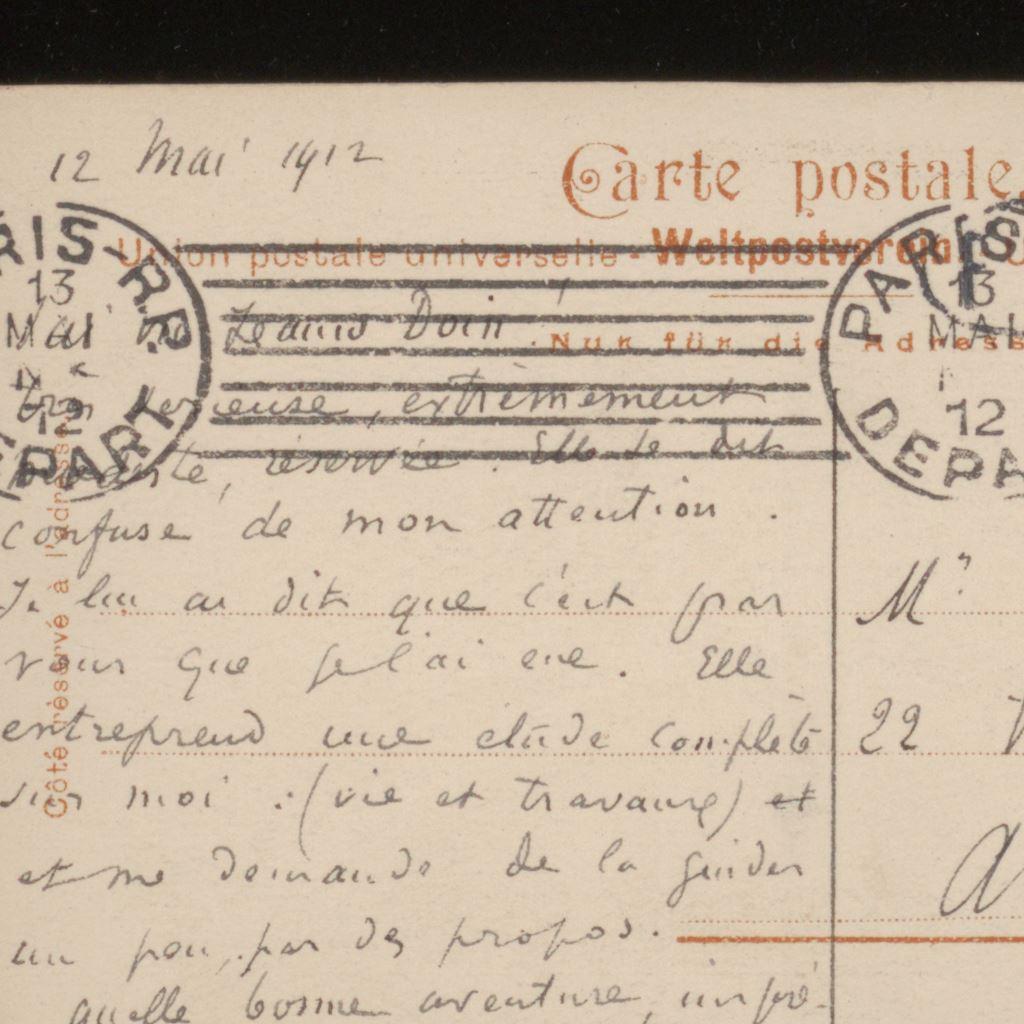 12 Mai 1912
Carte postale.
Union postale universelle - Weltpostverein
Nur für die Adresse
RIS-R.P.
13
MAI
12
DEPART
PARIS
13
MAI
12
DEPA
Côté réservé à l'adresse
Jeanne Doin
très sérieuse, extrêmement
modeste, réservée. Elle se dit
confuse de mon attention.
Je lui ai dit que c'est par
vous que je l'ai eue. Elle
entreprend une étude complète
sur moi :(vie et travaux) et
et me demande de la guider
un peu, par des propos.
quelle bonne aventure, impré-
Mr
22